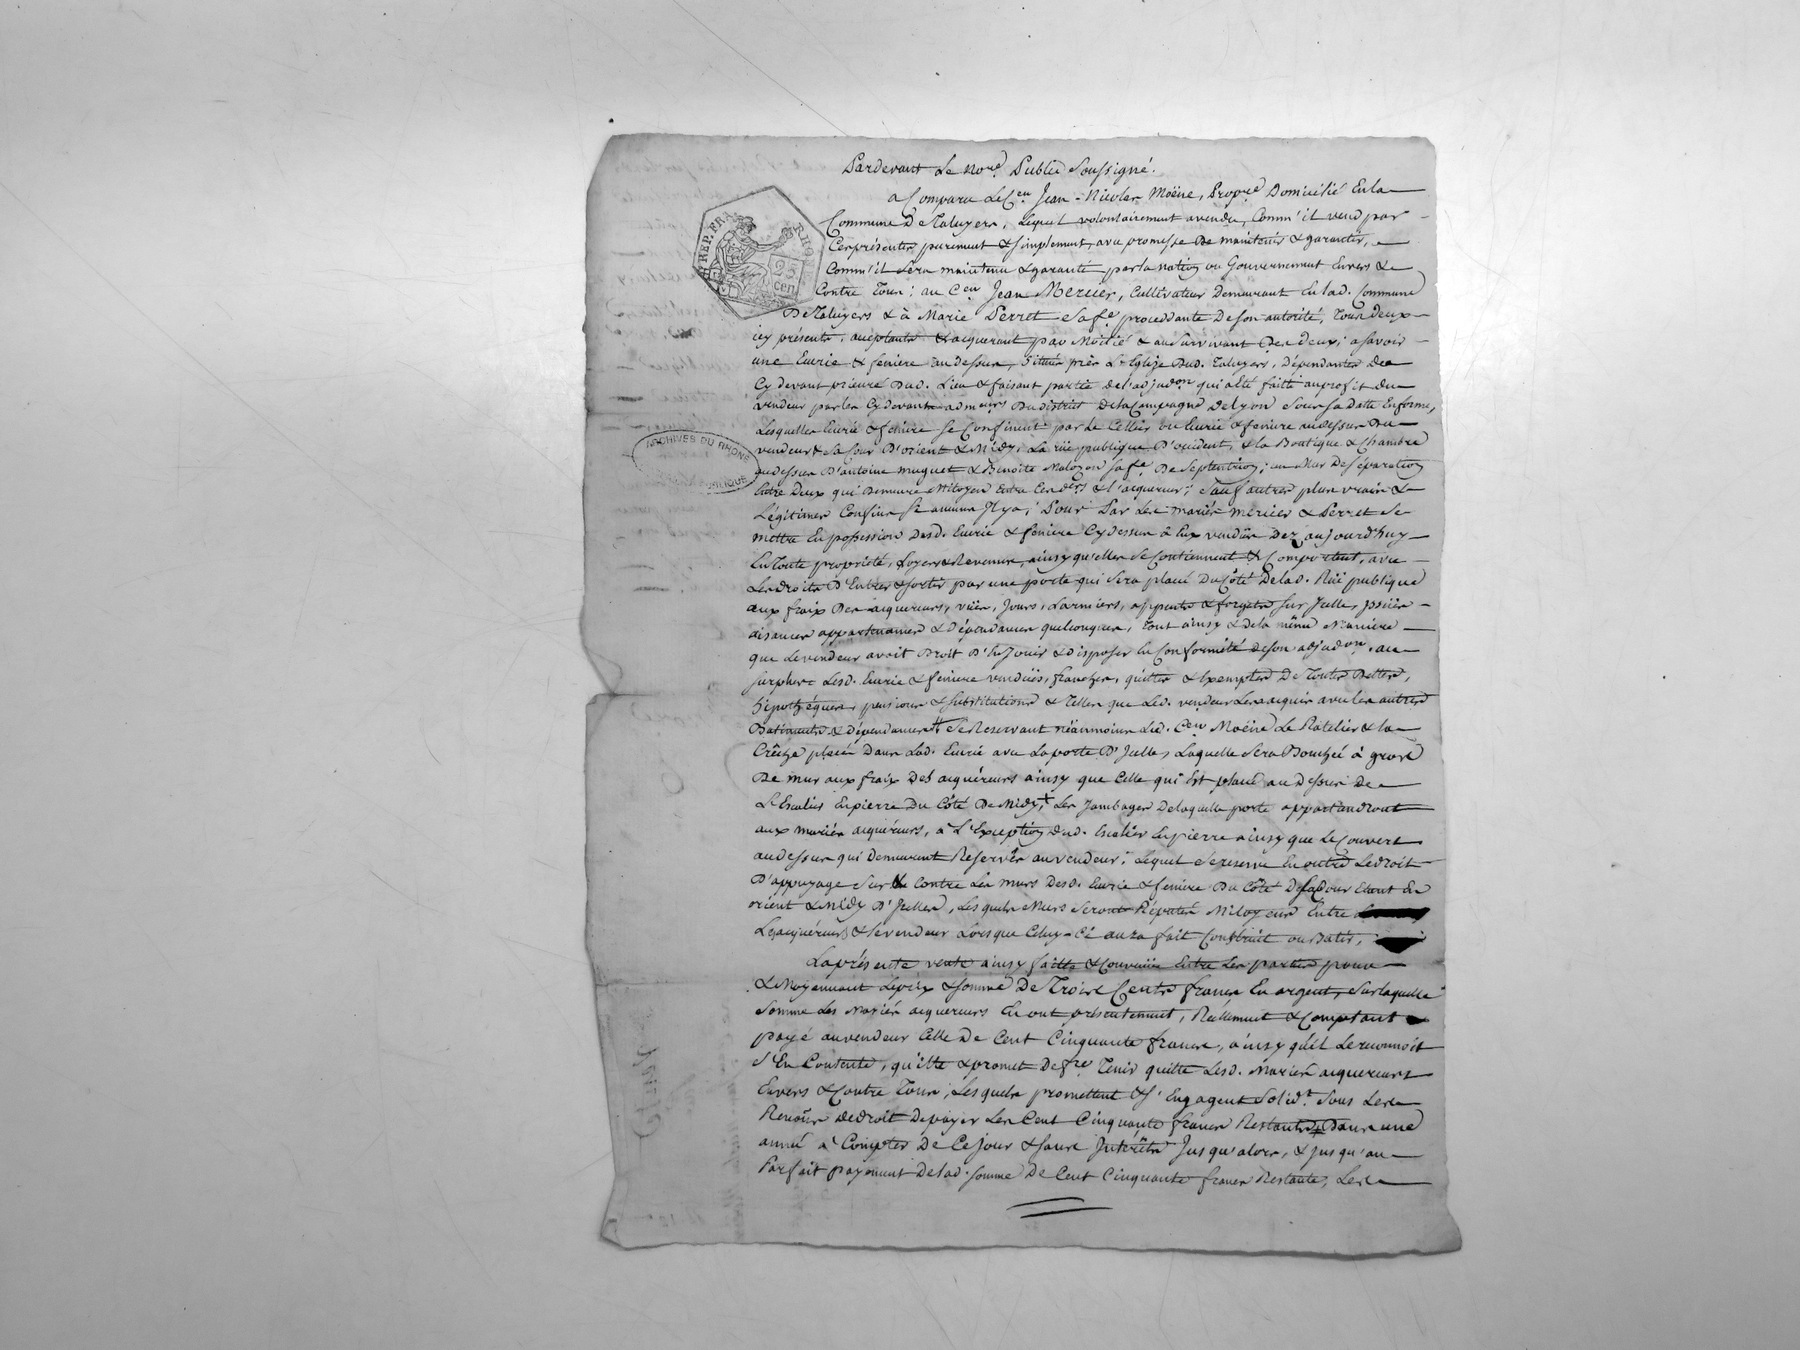 Pardevant Le no.re Public Soussigné.
a Comparu Le C.en Jean-Nicolas Moëne, Prop.re Domicilié En la
Commune De Taluyers, Lequel volontairement a vendu, Comm'il vend par
Ces présentes purement & simplement, avec promesse De maintenir & garantir,
Comm'il sera maintenu & garanti par la nation ou Gouvernement Envers &
Contre Tous; au C.en Jean Mercier, Cultivateur Demeurant En lad. Commune
De Taluyers & à Marie Perret sa fe. procédante De son autorité, Tous deux
icy présents, acceptants & acquerant par Moitié & au Survivant Des deux; a savoir
une Eurie & feniere au dessus, Situés près L'Eglize Dud. Taluyers, Dépendantes du
Cy devant prieuré Dud. Lieu & faisant partie de l'adjudon. qui a été faitte au profit du
vendeur par les Cy devants admeurs Du district De la Campagne De Lyon Sous sa datte En forme,
Lesquelles Eurie & feniere se Confinent par le Cellier, ou Eurie & feniere au dessus Du
vendeur & sa Cour D'orient & Midy, La rüe publique D'occident, & la Boutique & Chambre
au dessus D'antoine muguet & Benoite Malozon sa fe. De Septentrion; un Mur De séparation
Entre Deux qui Demeure Mitoyen Entre Ces ders & l'acquereur; Sauf autres plus vrais &
Légitimes Confins Si aucuns Il y a; Pour Par Les mariés Mercier & Perret Se
mettre En possession Desd. Eurie & feniere Cy dessus à Eux vendües Dez aujourd'huy
En Toute propriété, Loyers & Revenus, ainsy qu'elles se Contiennent & Comportent, avec
Les droits D'Entrer & sortir par une porte qui Sera placé Du Côté De lad. Rüe publique
aux fraix Des acquereurs, vües, Jours, Larmiers, appents & forgets sur Icelle, issües
aisances appartenances & Dépendances quelconques, Tout ainsy & de la même Maniere
que Le vendeur avoit Droit D'En Jouir & Disposer En Conformité de son adjudon. au
surplus Lesd. Eurie & feniere vendües, franches, quittes & Exemptes De Toutes Dettes,
hipothéques, pensions & substitutions & Telles que Led. vendeur Les a acquis avec les autres
Batiments & dépendances # Se Reservant néanmoins Led. C.en Moëne Le Ratelier & la
Crêche placé Dans Lad. Eurie avec La porte D'Icelle, Laquelle Sera Bouchée à gros
De mur aux fraix Des acquéreurs ainsy que Celle qui Est placé au Dessus De
L'Escalier En pierre Du Côté De Midy, + Les Jambages De laquelle porte appartiendront
aux mariés acquéreurs, à L'Exception Dud. Escalier En pierre ainsy que Le Couvert
au dessus qui Demeurent Reservés au vendeur; Lequel Se reserve En outre Le droit
D'appuyage Sur & Contre Les murs Desd. Eurie & feniere Du Côté De sa Cour Etant En
orient & Midy D'Icelles, Lesquels Murs Seront Réputés Mitoyens Entre
Les acquéreurs & Le vendeur Lorsque Celuy-Ci aura fait Construire ou Batir,
La présente vente ainsy faitte & Convenüe Entre Les parties pour
& Moyennant Le prix & somme De Trois Cents francs En argent, Sur laquelle
Somme Les Mariés acquereurs En ont présentement, Réellement & Comptant
payé au vendeur Celle De Cent Cinquante francs, ainsy qu'il Le reconnoit
S'En Contente, quitte & promet De fre. Tenir quitte Lesd. Mariés acquereurs
Envers & Contre Tous; Lesquels promettent & S'Engagent Solidt. Sous Les
Renons De droit De payer Les Cent Cinquante francs Restants # Dans une
année à Compter De Ce Jour & sans Intérêts Jusqu'alors, & jusqu'au
Parfait payement De lad. somme De Cent Cinquante francs Restante, Les
REP. FRA.
RHONE
25
cen
ARCHIVES DU RHÔNE